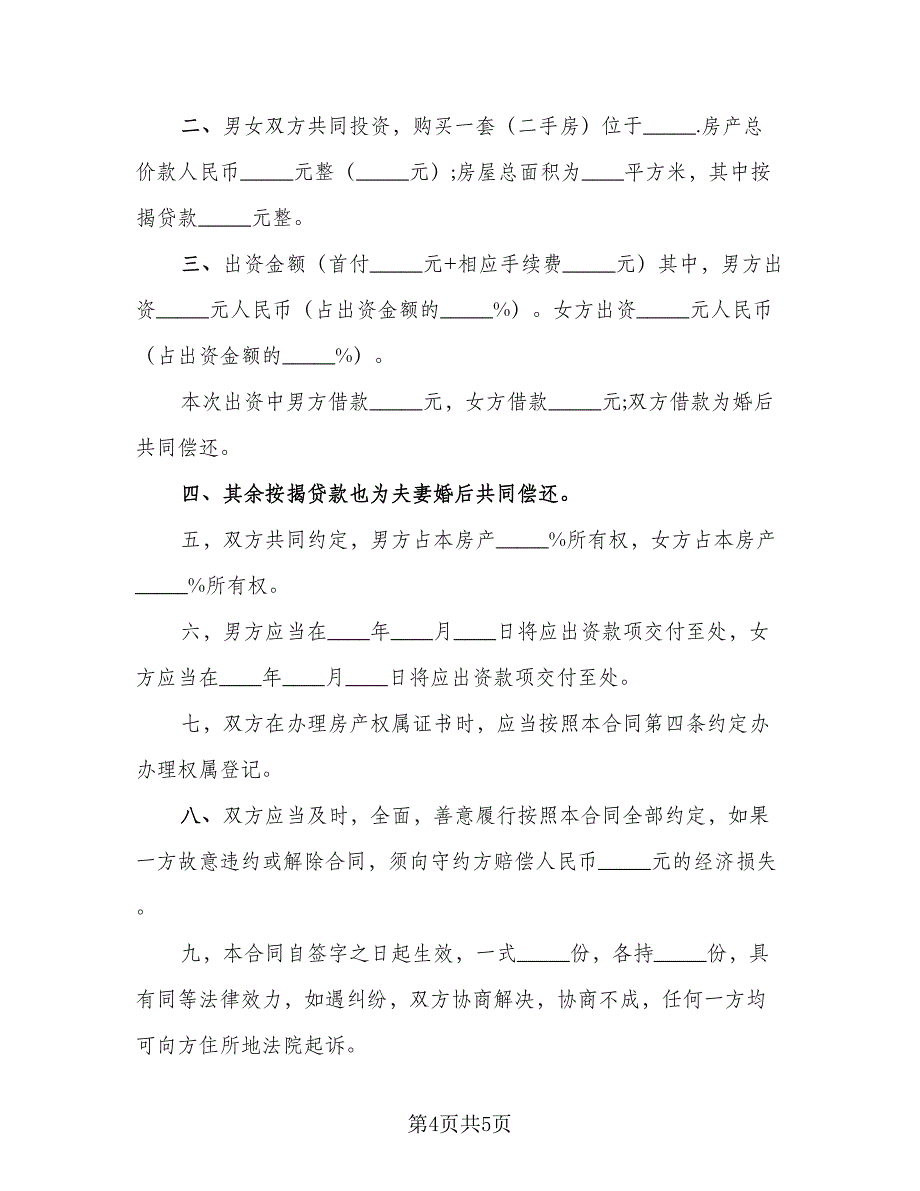 二、男女双方共同投资，购买一套（二手房）位于_____.房产总
价款人民币_____元整（_____元）;房屋总面积为____平方米，其中按
揭贷款_____元整。
三、出资金额（首付_____元+相应手续费_____元）其中，男方出
资_____元人民币（占出资金额的_____%）。女方出资_____元人民币
（占出资金额的_____%）。
本次出资中男方借款_____元，女方借款_____元;双方借款为婚后
共同偿还。
四、其余按揭贷款也为夫妻婚后共同偿还。
五，双方共同约定，男方占本房产_____%所有权，女方占本房产
_____%所有权。
六，男方应当在____年____月____日将应出资款项交付至处，女
方应当在____年____月____日将应出资款项交付至处。
七，双方在办理房产权属证书时，应当按照本合同第四条约定办
办理权属登记。
八、双方应当及时，全面，善意履行按照本合同全部约定，如果
一方故意违约或解除合同，须向守约方赔偿人民币_____元的经济损失
。
九，本合同自签字之日起生效，一式_____份，各持_____份，具
有同等法律效力，如遇纠纷，双方协商解决，协商不成，任何一方均
可向方住所地法院起诉。
第4页共5页